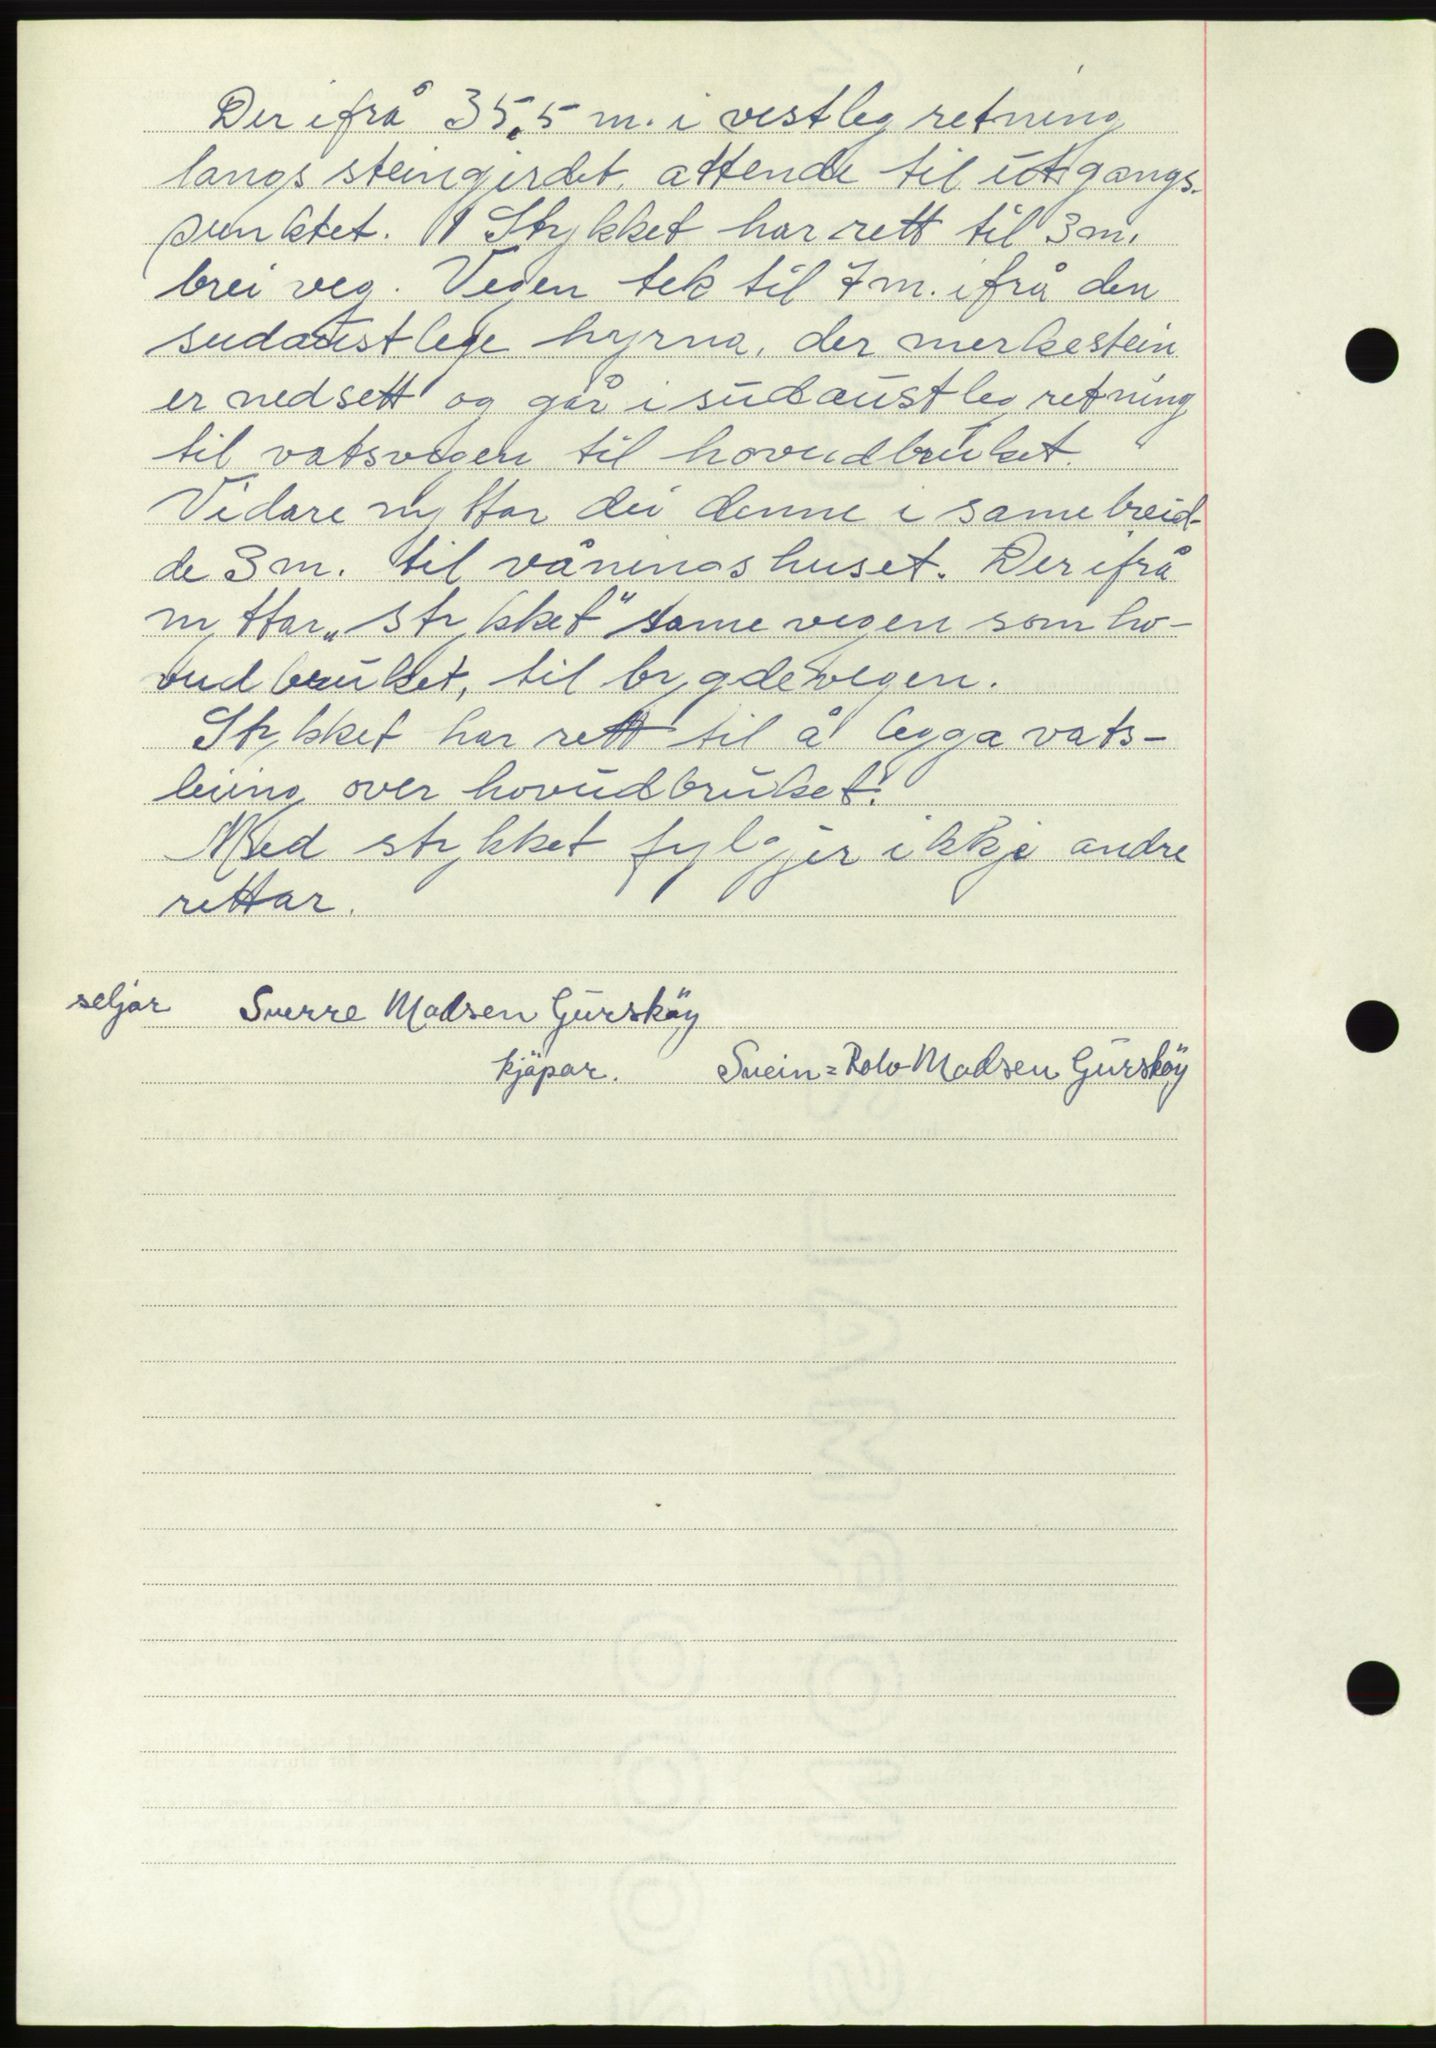 Der ifrå 35,5 m. i vestleg retning
langs steingjerdet, attende til utgangs-
punktet. Stykket har rett til 3 m.
brei veg. Vegen tek til 7 m. ifrå den
sudaustlege hyrna, der merkestein
er nedsett og går i sudaustleg retning
til vatsvegen til hovudbruket.
Vidare nyttar dei denne i same breid-
de 3 m. til våningshuset. Der ifrå
nyttar „stykket" same vegen som ho-
vudbruket, til bygdevegen.
Stykket har rett til å legga vats-
leiing over hovudbruket.
Med stykket fylgjer ikkje andre
rettar.
seljar Sverre Madsen Gursköy
kjöpar. Svein=Rolv Madsen Gursköy